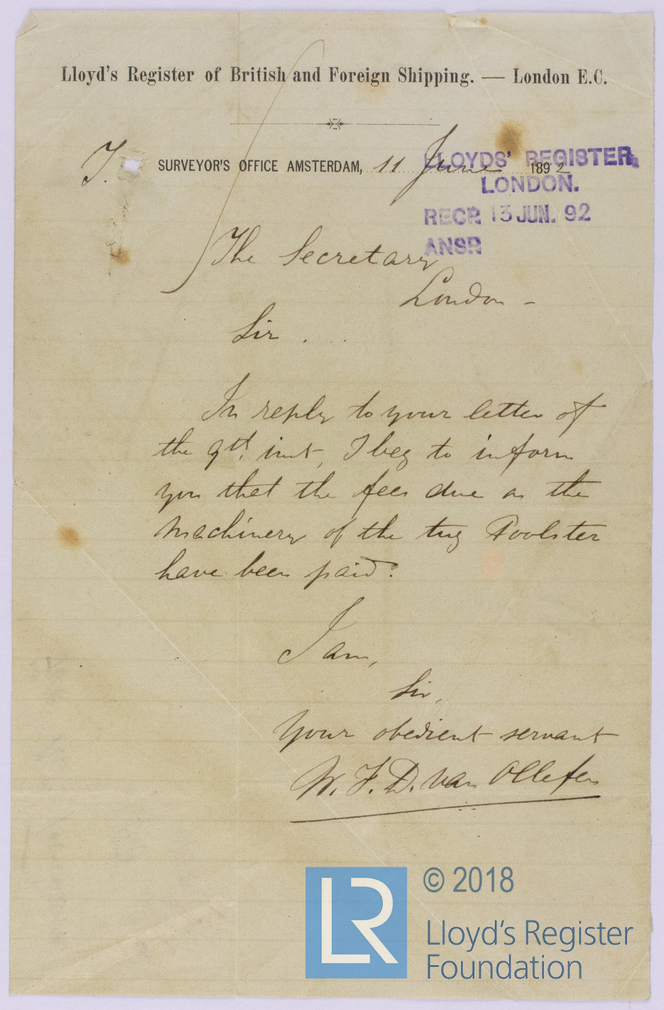 Lloyd's Register of British and Foreign Shipping. — London E.C.
SURVEYOR'S OFFICE AMSTERDAM, 11 June 1892
LLOYDS' REGISTER,
LONDON.
RECD. 13 JUN. 92
ANSR
The Secretary
London -
Sir.
In reply to your letter of
the 9th. inst, I beg to inform
you that the fees due on the
machinery of the tug
have been paid.
I am,
Sir,
Your obedient servant
W. F. D. van Ollefen
LR
© 2018
Lloyd's Register
Foundation